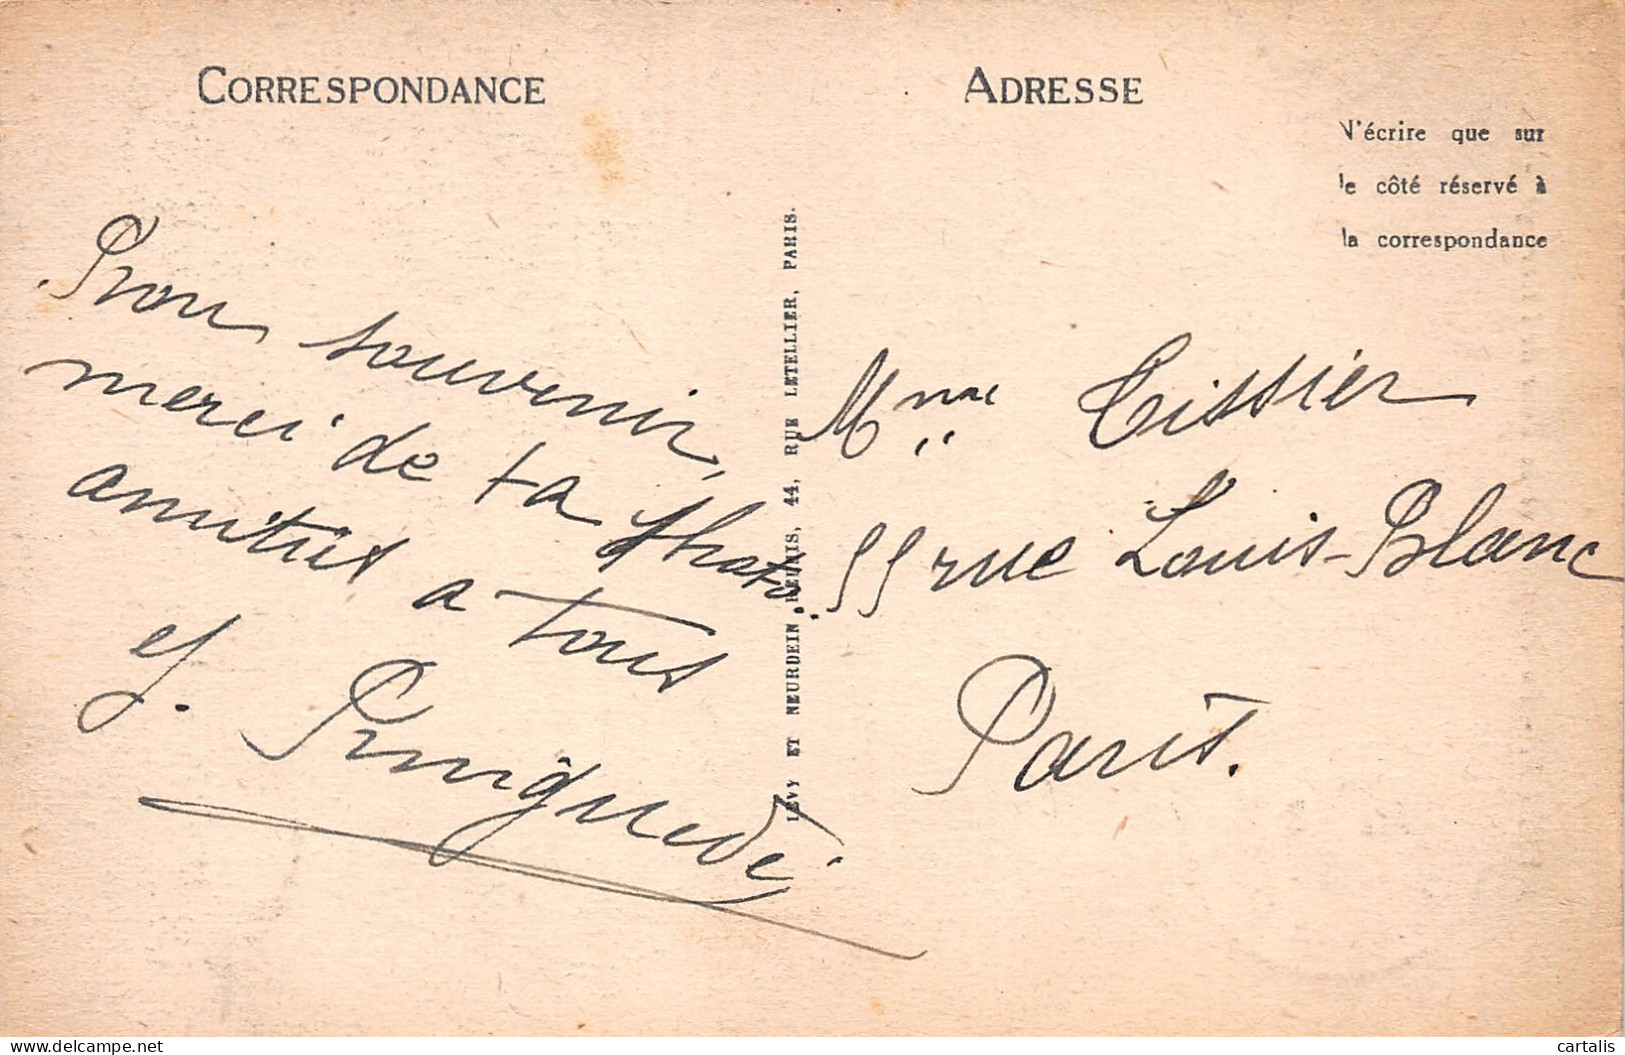 CORRESPONDANCE
Bon souvenir,
merci de ta photo.
amitiés a tous
J.
LEVY ET NEURDEIN RÉUNIS, 44, RUE LETELLIER, PARIS.
ADRESSE
N'écrire que sur
le côté réservé à
la correspondance
Mme Tissier
55 rue Louis-Blanc
Paris.
delcampe.net
cartalis